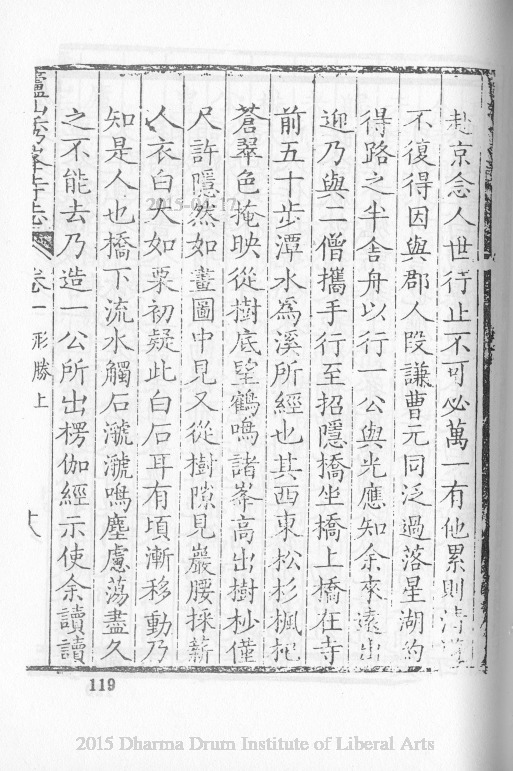 赴京念人世行止不可必萬一有他累則清
不復得因與郡人段謙曹元同泛過落星湖約
得路之半舍舟以行一公與光應知余來遠出
迎乃與二僧攜手行至招隱橋坐橋上橋在寺
前五十步潭水為溪所經也其西東松杉楓杞
蒼翠色掩映從樹底望鶴鳴諸峯高出樹杪僅
尺許隱然如畫圖中見又從樹隙見巖腰採薪
人衣白大如粟初疑此白石耳有頃漸移動乃
知是人也橋下流水觸石㶁㶁鳴塵慮蕩盡久
之不能去乃造一公所出楞伽經示使余讀讀
廬山秀峯寺志 卷一 形勝上 十八
119
2015-04-17
2015 Dharma Drum Institute of Liberal Arts